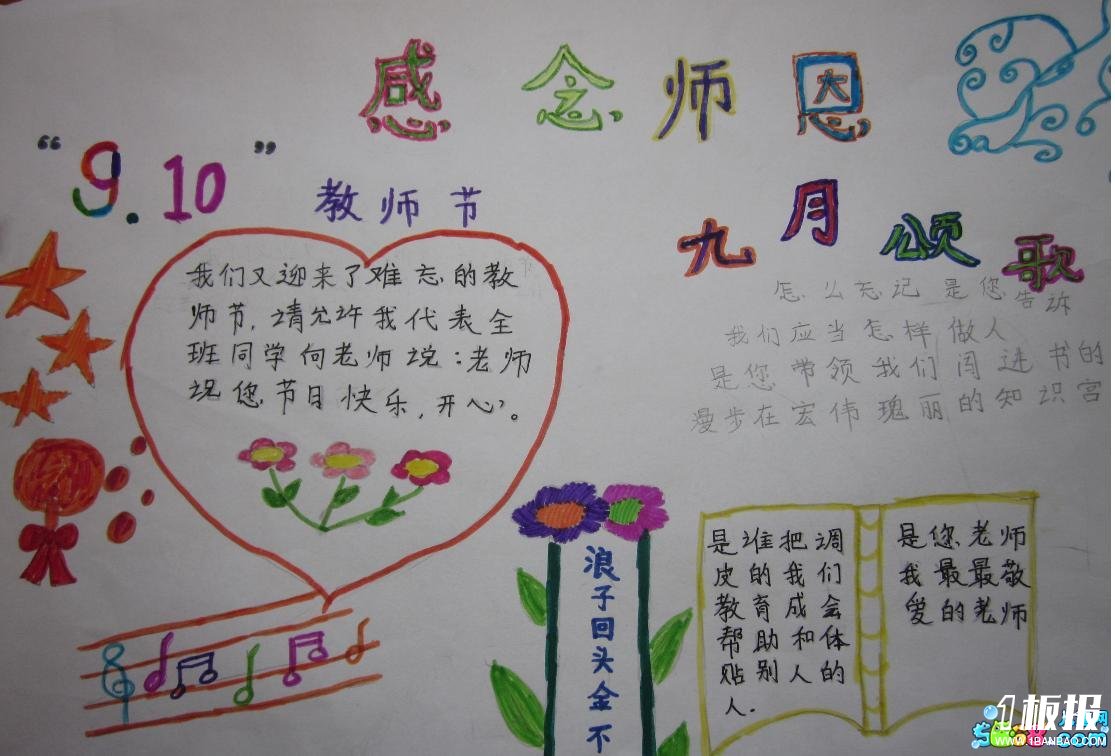 感念师恩
“9.10”
教师节
九月颂歌
我们又迎来了难忘的教
师节,请允许我代表全
班同学向老师说:老师
祝您节日快乐,开心。
怎么忘记是您告诉
我们应当怎样做人
是您带领我们阅进书的
漫步在宏伟瑰丽的知识宫
浪子回头金不
是谁把调
皮的我们
教育成会
帮助和体
贴别人的
人.
是您老师
我最最敬
爱的老师
1板报
WWW.1BANBAO.COM